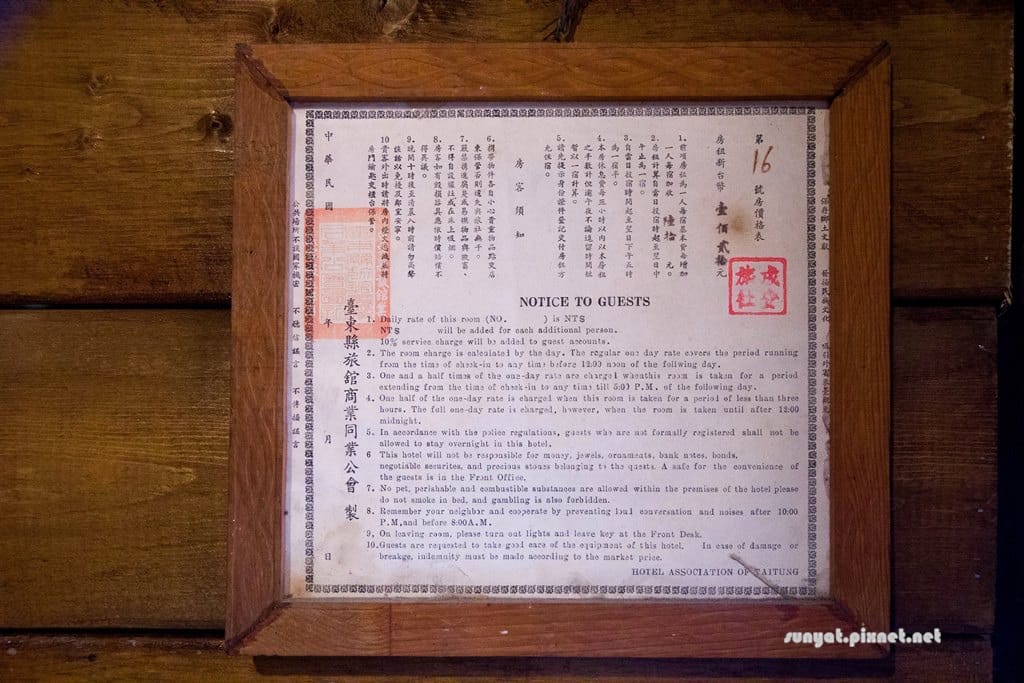 第 16 號房價格表
房租新台幣 壹佰貳拾元
1. 前項房租為一人每宿基本費每增加
一人每宿加收 陸拾 元。
2. 房租計算自當日投宿時起至翌日中
午止為一宿。
3. 自當日投宿時間起至翌日下午五時
為一宿半。
4. 本房休息費每三小時以內以本房租
之半數計但逾午夜不論逗留時間概
以一宿計算。
5. 請先提示身份證件登記交付房租方
允住宿。
房客須知
6. 攜帶物件各自小心貴重物品點交店
東保管否則遺失與旅社無干。
8. 房客如有毀損器具應依時價賠償不
得異議。
9. 晚間十時後至清晨八時前請勿高聲
談話以免擾及鄰室安寧。
10 貴客外出時請將房內燈火
房門鑰匙交櫃台保管。
中華民國 年 月 日
臺東縣旅館商業同業公會 製
公共場所不談國家機密 不聽信謠言 不傳播謠言
成安旅社
NOTICE TO GUESTS
1. Daily rate of this room (NO. ) is NTS
NTS will be added for each additional person.
10% service charge will be added to guest accounts.
2. The room charge is calculated by the day. The regular one day rate covers the period running
from the time of check-in to any time before 12:00 noon of the follwing day.
3. One and a half times of the one-day rate are charged whenthis room is taken for a period
extending from the time of check-in to any time till 5:00 P.M. of the following day.
4. One half of the one-day rate is charged when this room is taken for a period of less than three
hours. The full one-day rate is charged, however, when the room is taken until after 12:00
midnight.
5. In accordance with the police regulations, guests who are not formally registered shall not be
allowed to stay overnight in this hotel.
6 This hotel will not be responsible for money, jewels, ornaments, bank notes, bonds,
negotiable securites, and precious stones belonging to the quests. A safe for the convenience of
the guests is in the Front Office.
7. No pet, perishable and combustible substances are allowed within the premises of the hotel please
do not smoke in bed, and gambling is also forbidden.
8. Remember your neighbor and cooperate by preventing loud conversation and noises after 10:00
P.M,and before 8:00A.M.
9, On leaving room, please turn out lights and leave key at the Front Desk.
10.Guests are requested to take good care of the equipment of this hotel. In case of damage or
breakge, indemnity must be made according to the market price.
HOTEL ASSOCIATION OF TAITUNG
sunyat.pixnet.net